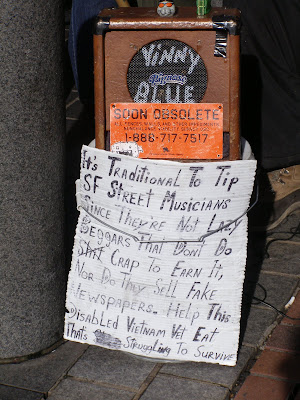 Vinny
Pignose
BLUE
SOON OBSOLETE
1-888-717-7517
It's Traditional To Tip
SF Street Musicians
Since They're Not Lazy
Beggars That Don't Do
Shit Crap To Earn It,
Nor Do They Sell Fake
Newspapers. Help This
Disabled Vietnam Vet Eat
Thats Struggling To Survive